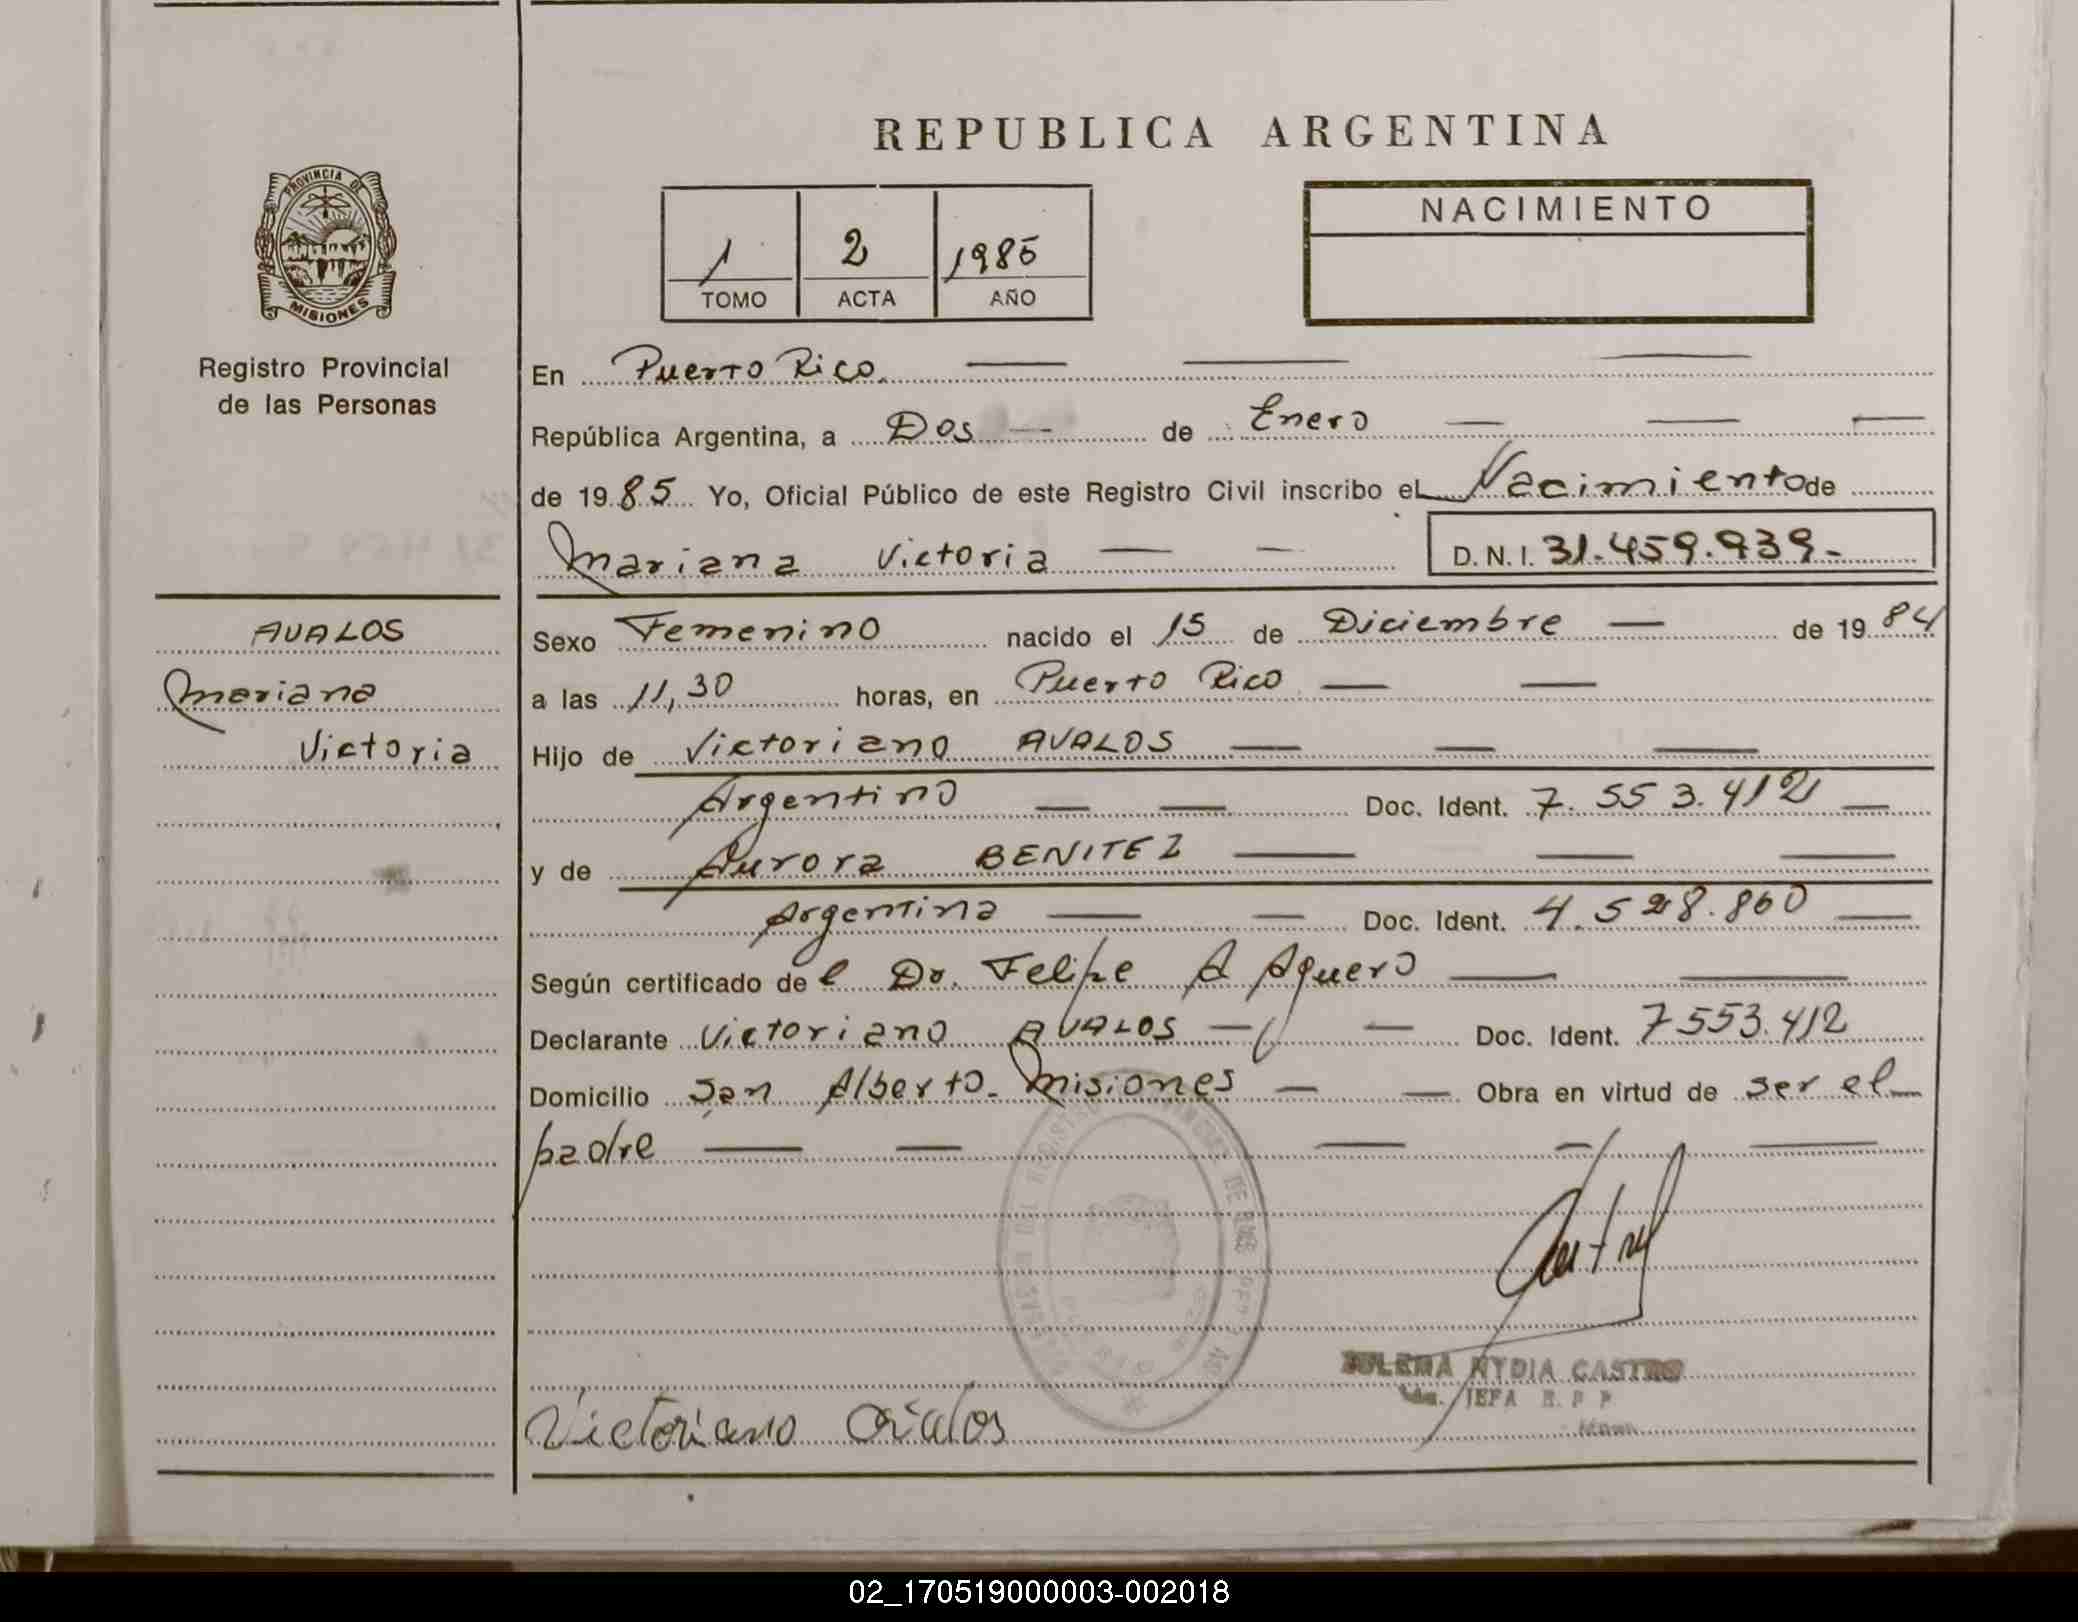 REPUBLICA ARGENTINA
PROVINCIA DE
MISIONES
Registro Provincial
de las Personas
1 2 1985
TOMO ACTA AÑO
NACIMIENTO
En Puerto Rico.
República Argentina, a Dos de Enero
de 1985 Yo, Oficial Público de este Registro Civil inscribo eL Nacimiento de
Mariana Victoria D.N.I. 31.459.939.-
AVALOS
Mariana
Victoria
Sexo Femenino nacido el 15 de Diciembre de 1984
a las 11,30 horas, en Puerto Rico
Hijo de Victoriano AVALOS
Argentino Doc. Ident. 7.553.412
y de Aurora BENITEZ
Argentina Doc. Ident. 4.528.860
Según certificado del Dr. Felipe A Aguero
Declarante Victoriano AVALOS Doc. Ident. 7553.412
Domicilio San Alberto- Misiones Obra en virtud de ser el
padre
NYDIA CASTRO
JEFA R.P.P
Victoriano Avalos
02_170519000003-002018